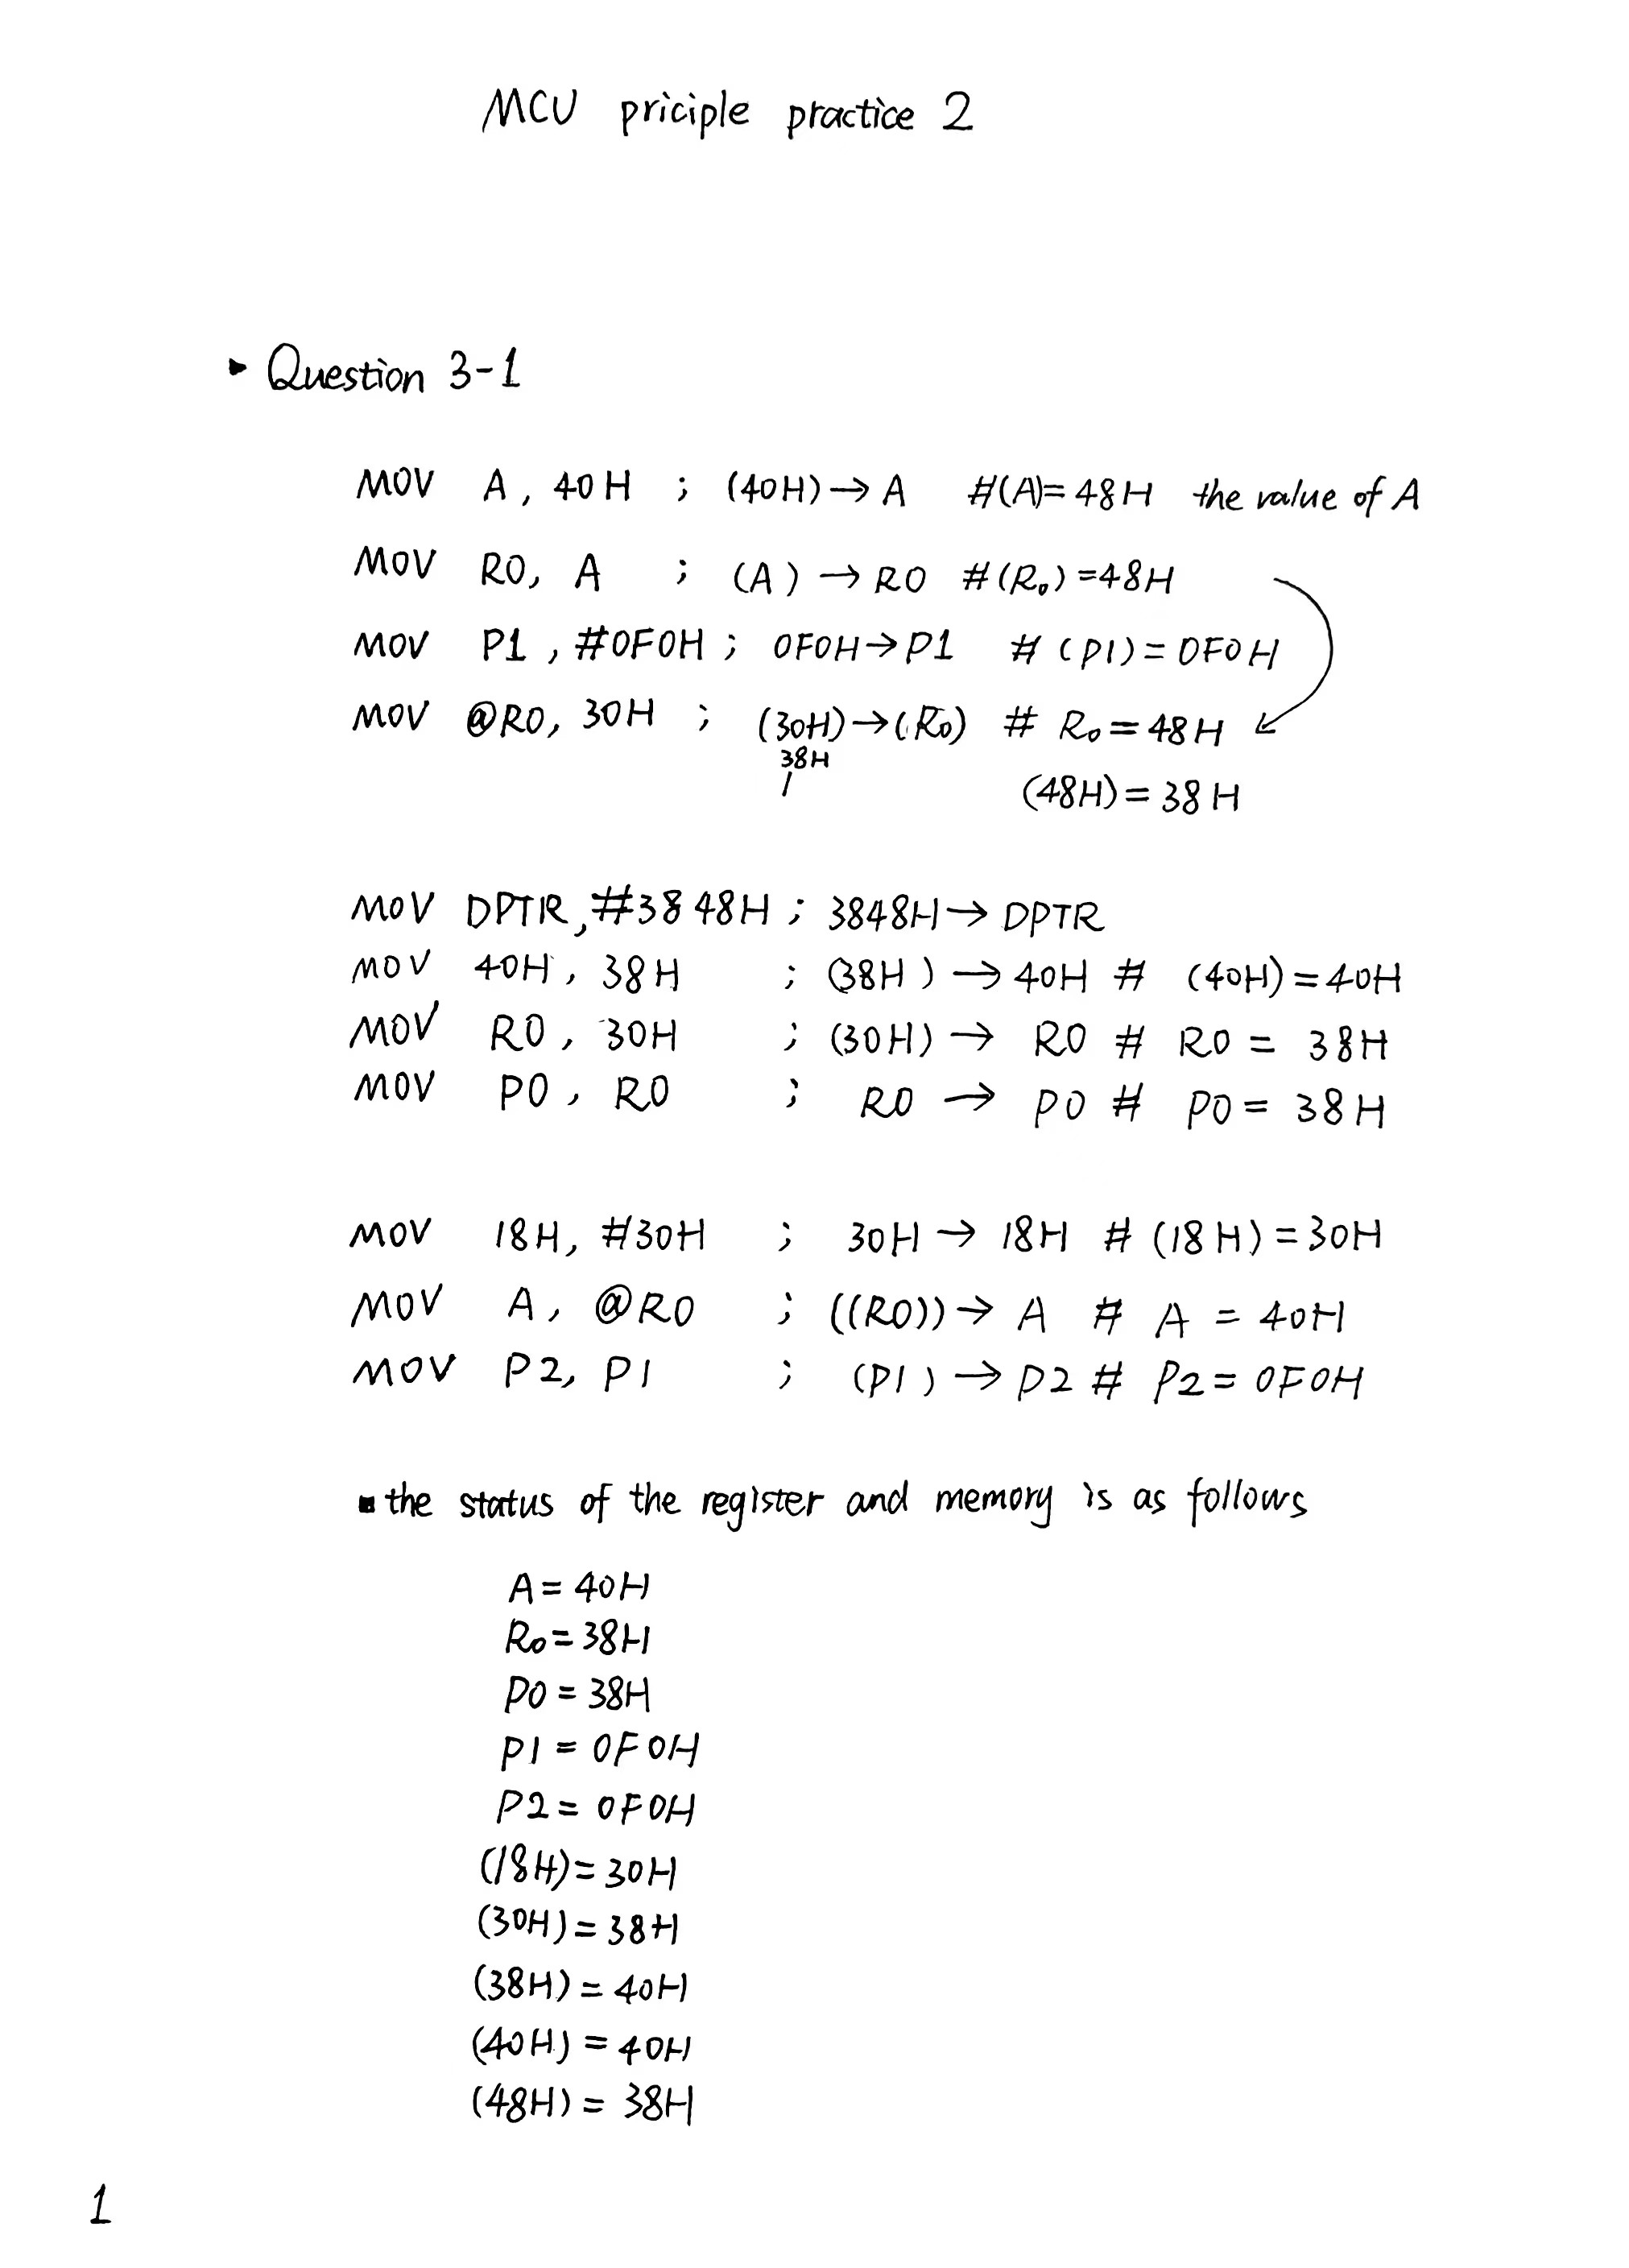 MCU priciple practice 2
▸ Question 3-1
MOV A, 40H ; (40H)→A #(A)=48H the value of A
MOV R0, A ; (A)→R0 #(R₀)=48H
MOV P1, #0F0H ; 0F0H→P1 #(P1)=0F0H
MOV @R0, 30H ; (30H)→(R₀) # R₀=48H
38H
(48H)=38H
MOV DPTR,#3848H ; 3848H→DPTR
MOV 40H, 38H ; (38H)→40H # (40H)=40H
MOV R0, 30H ; (30H)→ R0 # R0 = 38H
MOV P0, R0 ; R0 → P0 # P0= 38H
MOV 18H, #30H ; 30H→18H # (18H)=30H
MOV A, @R0 ; ((R0))→ A # A = 40H
MOV P2, P1 ; (P1)→P2 # P2= 0F0H
▪ the status of the register and memory is as follows
A= 40H
R₀=38H
P0=38H
P1= 0F0H
P2= 0F0H
(18H)=30H
(30H)=38H
(38H)=40H
(40H)=40H
(48H)= 38H
1